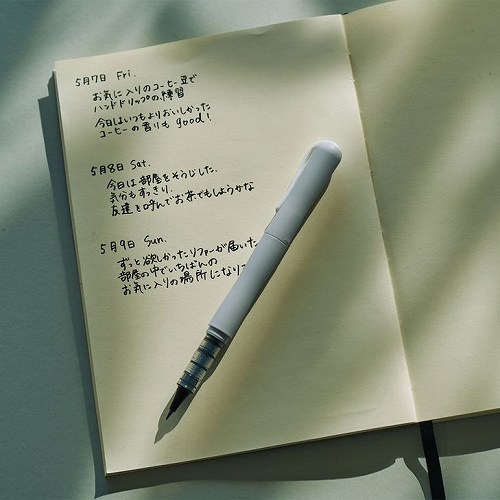 5月7日 Fri.
お気に入りのコーヒー豆で
ハンドドリップの練習
今日はいつもよりおいしかった
コーヒーの香りも good!
5月8日 Sat.
今日は部屋をそうじした.
気分もすっきり.
友達を呼んでお茶でもしようかな
5月9日 Sun.
ずっと欲しかったソファーが届いた
部屋の中でいちばんの
お気に入りの場所になりそ